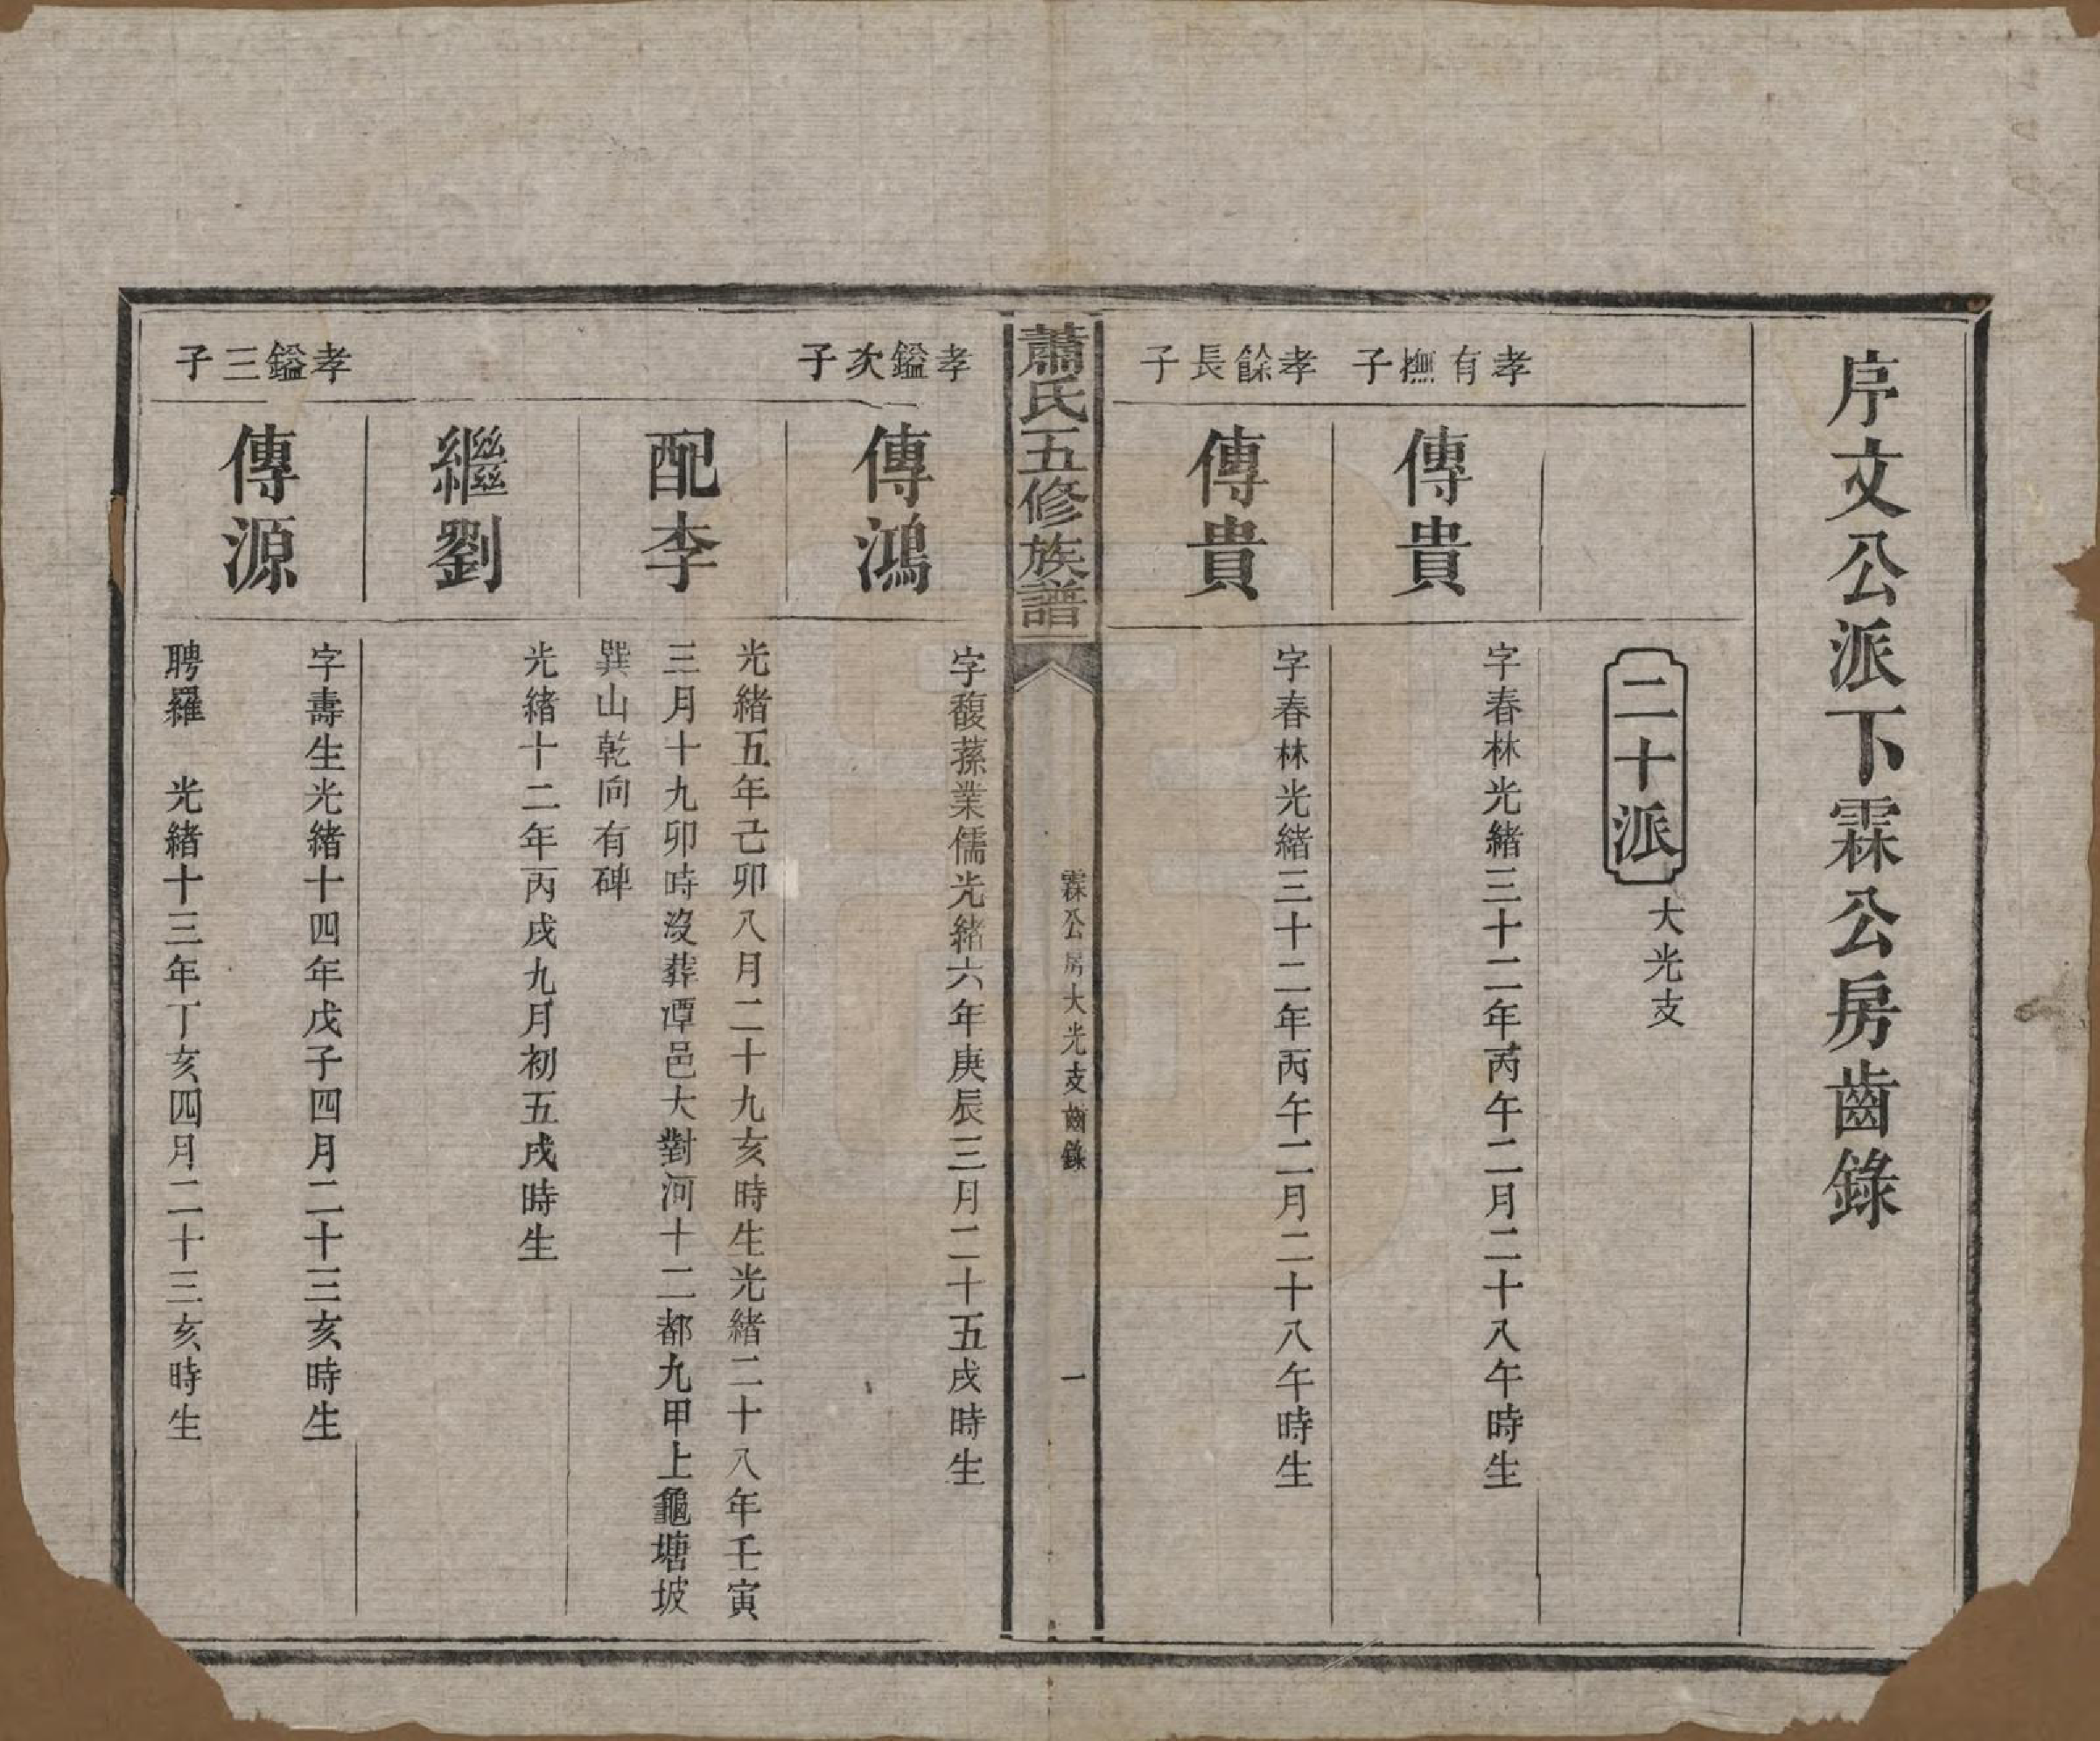 序文公派下霖公房齒錄
二十派
大光支
孝有撫子
傳貴
字春林光緒三十二年丙午二月二十八午時生
孝餘長子
傳貴
字春林光緒三十二年丙午二月二十八午時生
蕭氏五修族譜
霖公房大光支齒錄
一
孝鎰次子
傳鴻
字馥蓀業儒光緒六年庚辰三月二十五戌時生
配李
光緒五年己卯八月二十九亥時生光緒二十八年壬寅
三月十九卯時沒葬潭邑大對河十二都九甲上龜塘坡
巽山乾向有碑
繼劉
光緒十二年丙戌九月初五戌時生
孝鎰三子
傳源
字壽生光緒十四年戊子四月二十三亥時生
聘羅 光緒十三年丁亥四月二十三亥時生